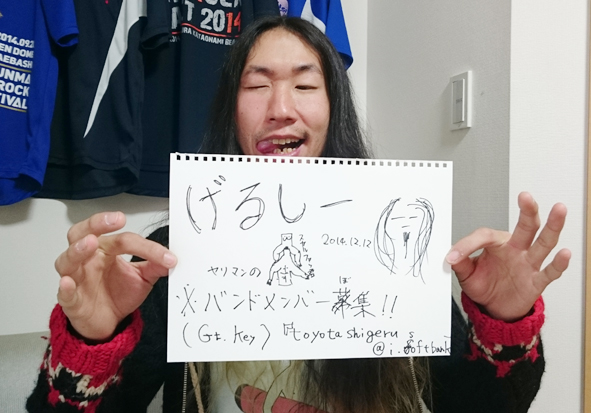 2014.09.2
EN DOME
AEBASHI
UNMA
ROCK
STIVAL
T 2014
げるしー
2014.12.12
ヤリマンの
※バンドメンバー募集!!
ぼ
(Gt. key) toyotashigeru
@i.softbank